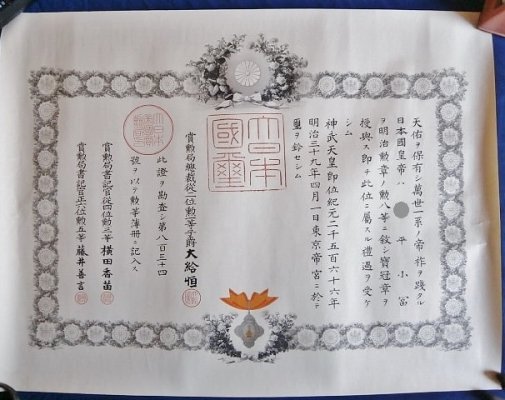 天佑ヲ保有シ萬世一系ノ帝祚ヲ踐タル
日本國皇帝ハ 平小富
ヲ明治勲章ノ勲八等ニ敍シ寶冠章ヲ
授與ス即チ此位ニ屬スル禮遇ヲ受ケ
シム
神武天皇即位紀元二千五百六十六年
明治三十九年四月一日東京帝宮ニ於テ
璽ヲ鈐セシム
大日本
國璽
賞勲局總裁從二位勲一等子爵大給恒
此證ヲ勘査シ第八百三十四
號ヲ以テ勲等簿册ニ記入ス
賞勲局書記官從四位勲三等横田香苗
賞勲局書記官正六位勲五等藤井善言